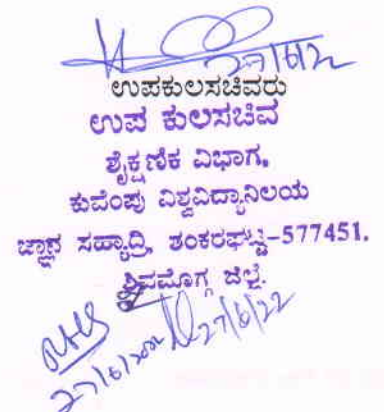 27/6/22
ಉಪಕುಲಸಚಿವರು
ಉಪ ಕುಲಸಚಿವ
ಶೈಕ್ಷಣಿಕ ವಿಭಾಗ.
ಕುವೆಂಪು ವಿಶ್ವವಿದ್ಯಾನಿಲಯ
ಜ್ಞಾನ ಸಹ್ಯಾದ್ರಿ, ಶಂಕರಘಟ್ಟ-577451.
ಶಿವಮೊಗ್ಗ ಜಿಲ್ಲೆ.
27/6/22
27/6/2022